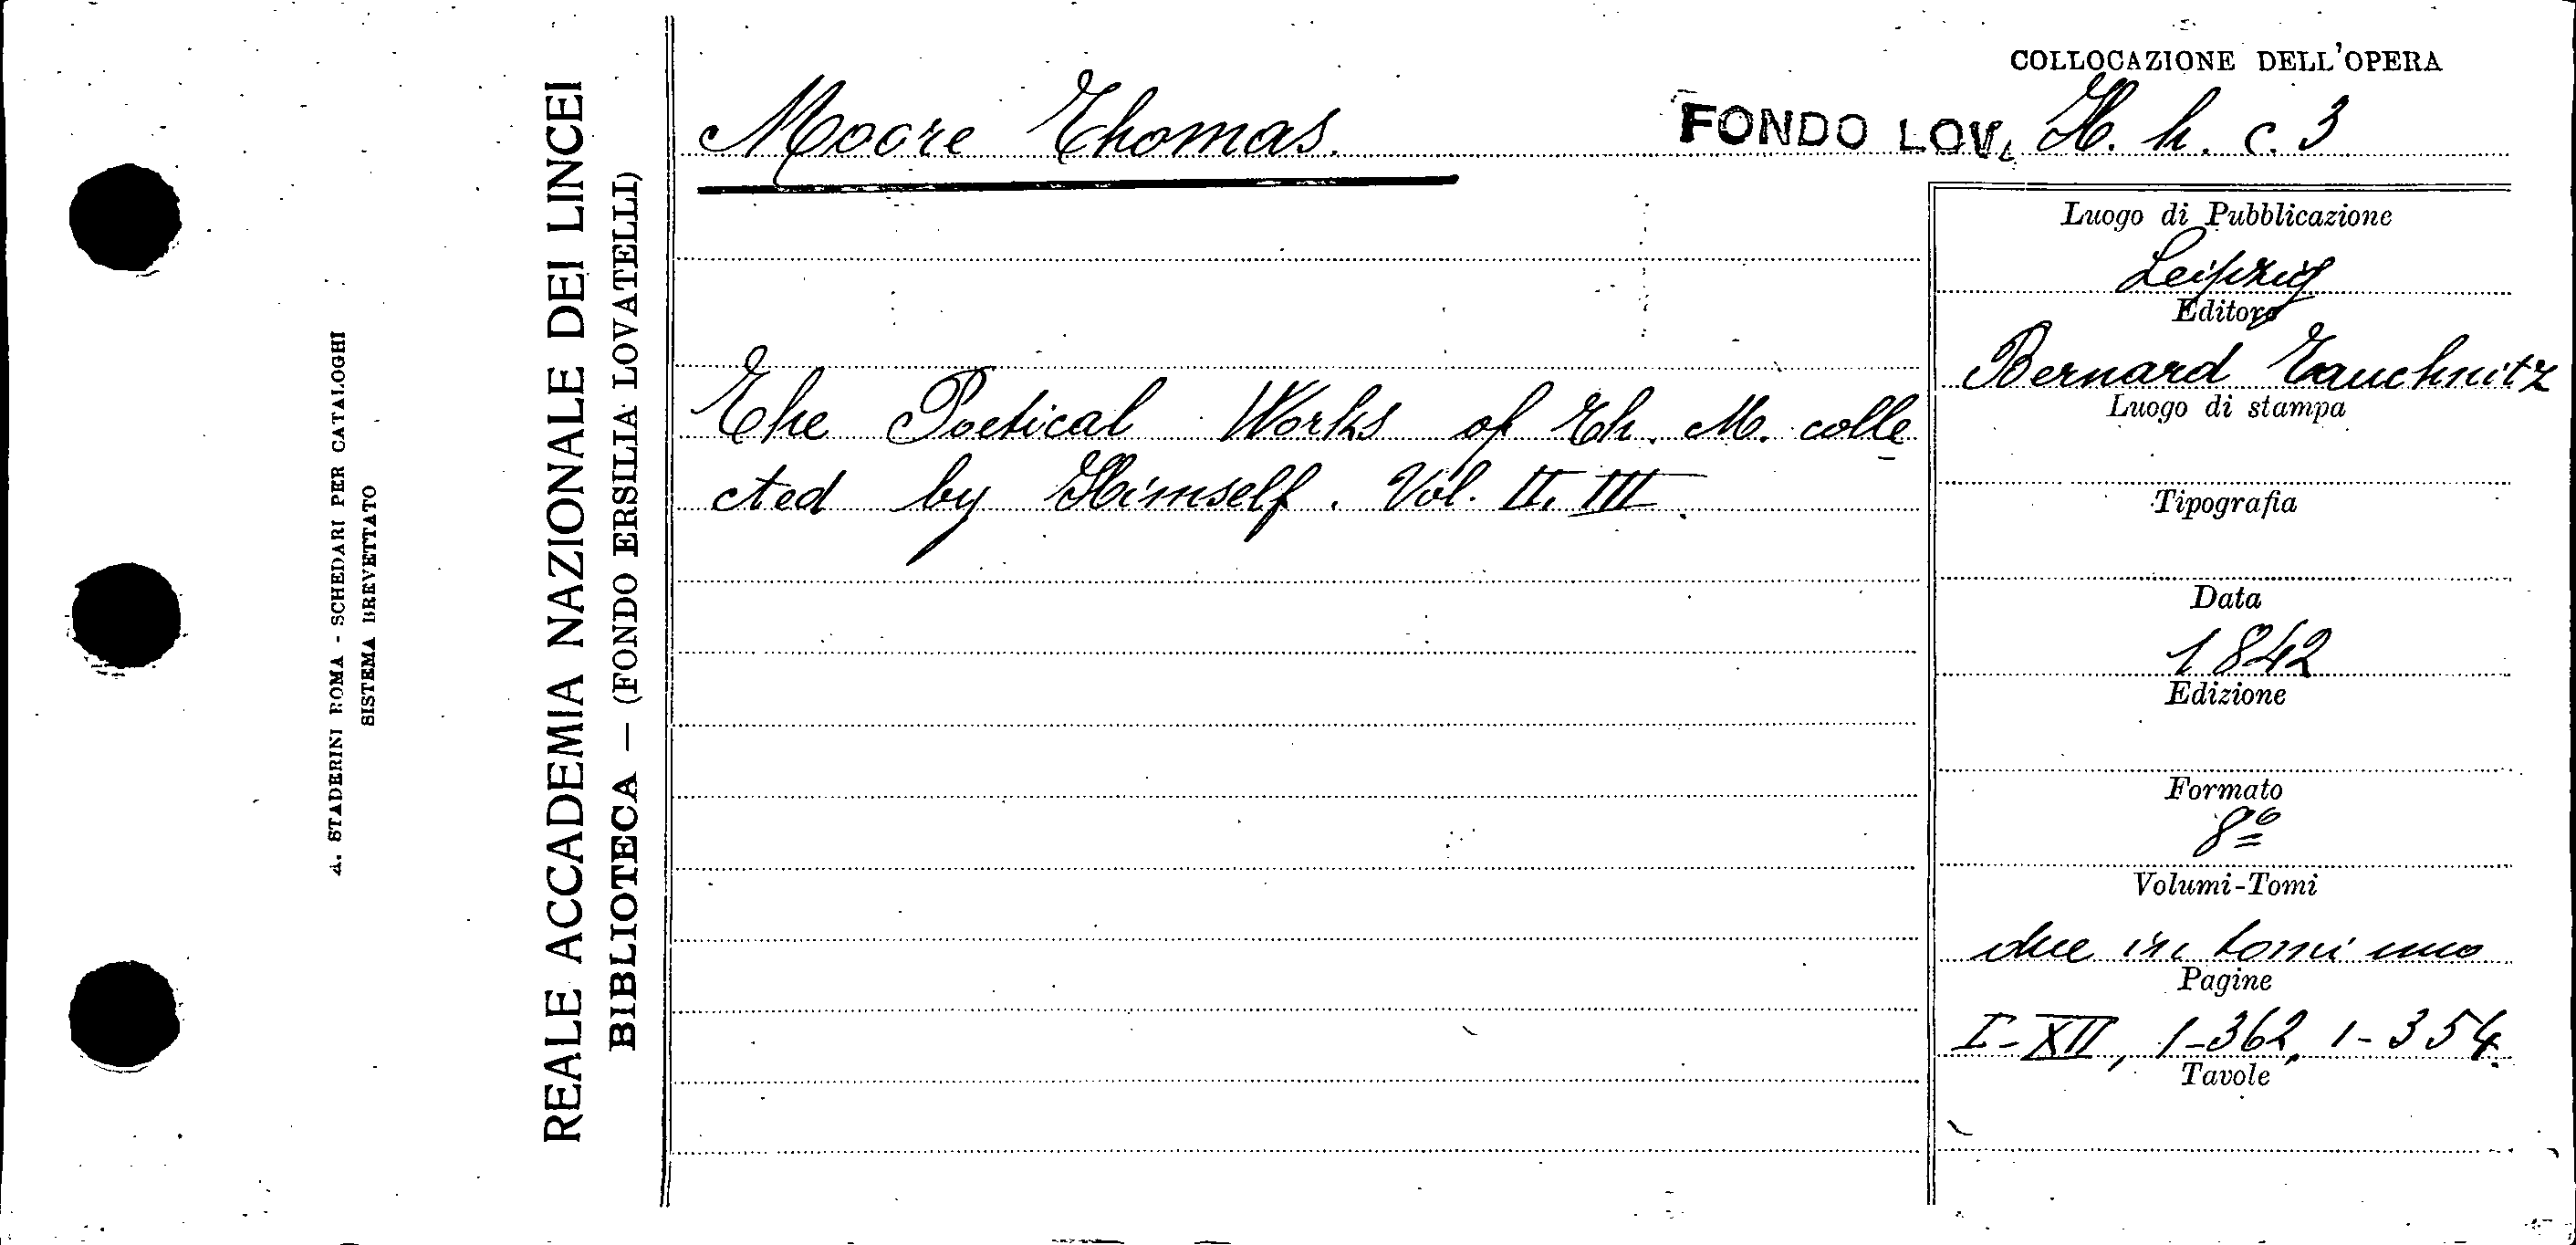 A. STADERINI ROMA - SCHEDARI PER CATALOGHI
SISTEMA BREVETTATO
REALE ACCADEMIA NAZIONALE DEI LINCEI
BIBLIOTECA — (FONDO ERSILIA LOVATELLI)
Moore Thomas.
The Poetical Works of Th. M. colle
cted by Himself. Vol. II. III.
COLLOCAZIONE DELL'OPERA
FONDO LOV. H. h. c. 3
Luogo di Pubblicazione
Leipzig
Editore
Bernard Tauchnitz
Luogo di stampa
Tipografia
Data
1842
Edizione
Formato
8º
Volumi-Tomi
due in tomi uno
Pagine
I-XII, 1-362, 1-354.
Tavole